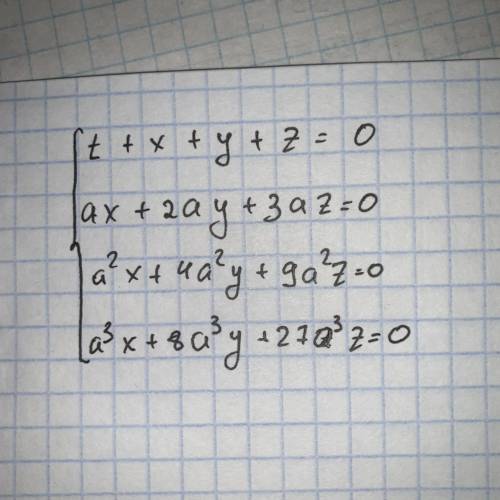 t + x + y + z = 0
ax + 2ay + 3az = 0
a²x + 4a²y + 9a²z = 0
a³x + 8a³y + 27a³z = 0